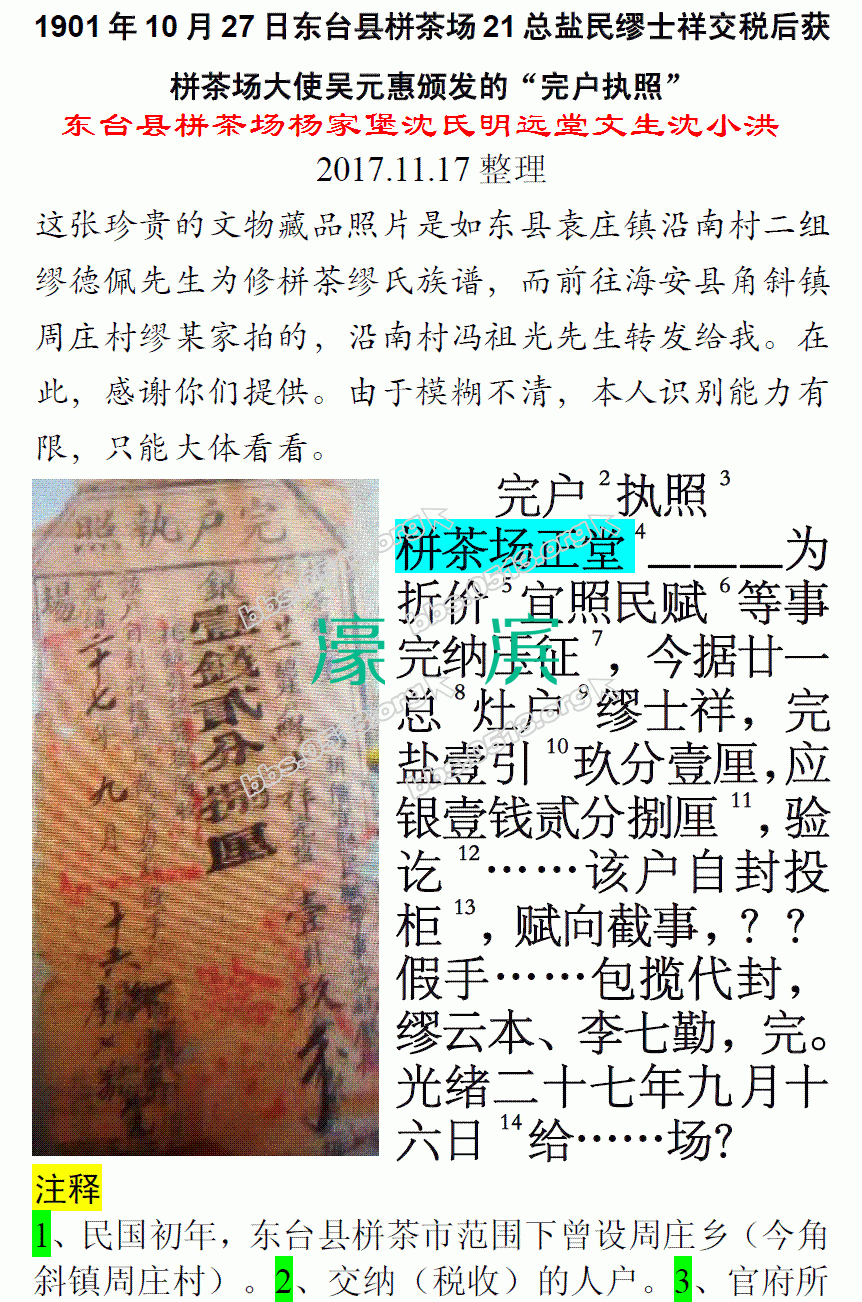 1901年10月27日东台县栟茶场21总盐民缪士祥交税后获
栟茶场大使吴元惠颁发的“完户执照”
东台县栟茶场杨家堡沈氏明远堂文生沈小洪
2017.11.17整理
这张珍贵的文物藏品照片是如东县袁庄镇沿南村二组
缪德佩先生为修栟茶缪氏族谱，而前往海安县角斜镇
周庄村缪某家拍的，沿南村冯祖光先生转发给我。在
此，感谢你们提供。由于模糊不清，本人识别能力有
限，只能大体看看。
照執户完
銀壹錢貳分捌厘
光緒二十七年九月十六
壹引玖分
場
完户2执照3
栟茶场正堂4____为
折价5宜照民赋6等事
完纳玉征7，今据廿一
总8灶户9缪士祥，完
盐壹引10玖分壹厘，应
银壹钱贰分捌厘11，验
讫12……该户自封投
柜13，赋向截事，？？
假手……包揽代封，
缪云本、李七勤，完。
光绪二十七年九月十
六日14给……场？
濠滨
bbs.0513.org
bbs.0513.org
bbs.0513.org
bbs.0513.org
注释
1、民国初年，东台县栟茶市范围下曾设周庄乡（今角
斜镇周庄村）。2、交纳（税收）的人户。3、官府所